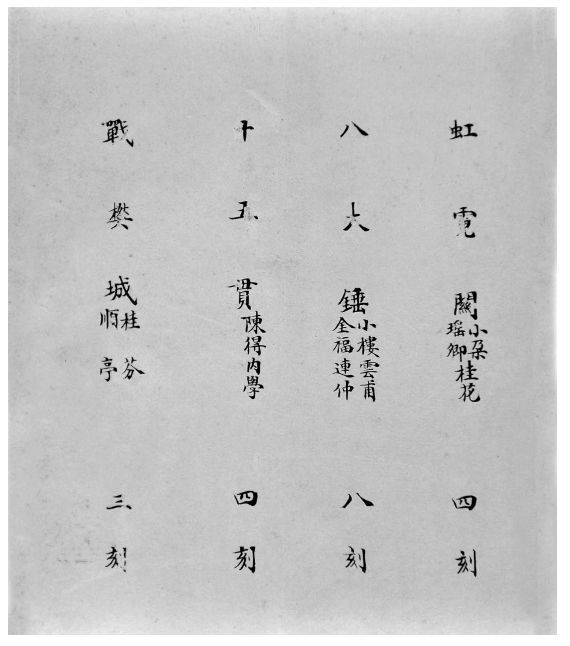 虹霓關
小朵桂花
瑶卿
四刻
八大錘
小樓雲甫
金福連仲
八刻
十五貫
陳得内學
四刻
戰樊城
桂芬
順亭
三刻